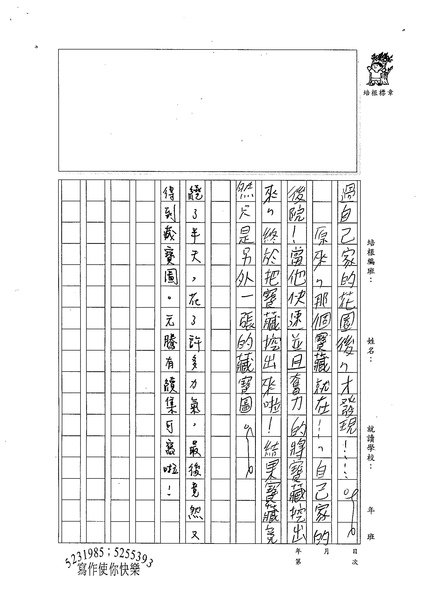 培根標章
培根編班： 姓名： 就讀學校： 年 班
年 月 日 第 次
過自己家的花園後，才發現！……。
原來，那個寶藏就在……，自己家的
後院！當他快速並且奮力的將寶藏挖出
來，終於把寶藏挖出來啦！結果寶藏竟
然只是另外一張的藏寶圖。
繞了半天，花了許多力氣，最後竟然又
得到藏寶圖。元騰有續集可寫啦！
5231985；5255393
寫作使你快樂